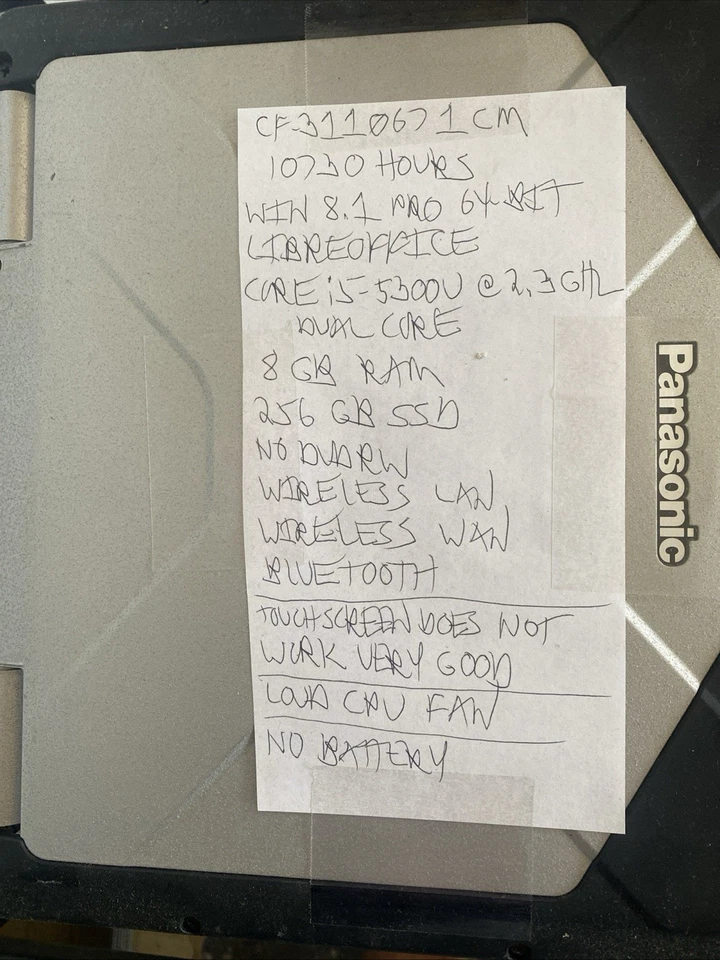 CF-3110671CM
10730 HOURS
WIN 8.1 PRO 64-BIT
LIBREOFFICE
CORE i5-5300U @ 2.3 GHZ
DUAL CORE
8 GB RAM
256 GB SSD
NO DVDRW
WIRELESS LAN
WIRELESS WAN
BLUETOOTH
TOUCHSCREEN DOES NOT
WORK VERY GOOD
LOUD CPU FAN
NO BATTERY
Panasonic